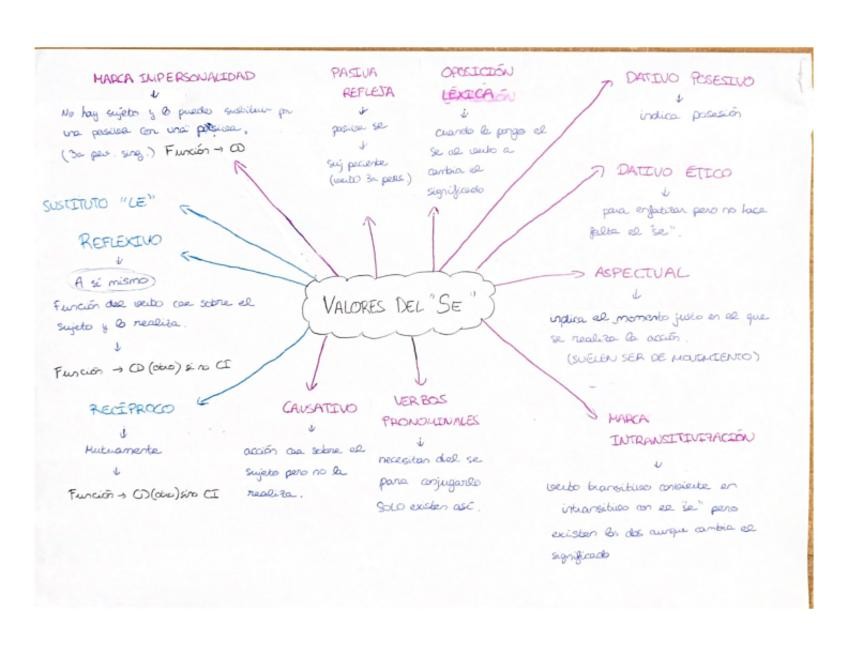 MARCA IMPERSONALIDAD
↓
No hay sujeto y lo puedo sustituir por
una pasiva con una
(3a per. sing.) Función → CD
PASIVA
REFLEJA
↓
pasiva se
↓
Suj paciente
(verbo 3a pers.)
OPOSICIÓN
LÉXICA
↓
cuando le pongo el
se al verbo a
cambia el
significado
DATIVO POSESIVO
↓
indica posesión
DATIVO ÉTICO
↓
para enfatizar pero no hace
falta el "se".
ASPECTUAL
↓
indica el momento justo en el que
se realiza la acción.
(SUELEN SER DE MOVIMIENTO)
MARCA
INTRANSITIVIZACIÓN
↓
verbo transitivo convierte en
intransitivo con el "se" pero
existen los dos aunque cambia el
significado
SUSTITUTO "LE"
REFLEXIVO
↓
A sí mismo
Función del verbo cae sobre el
sujeto y lo realiza.
↓
Función → CD (otro) si no CI
VALORES DEL "SE"
RECÍPROCO
↓
Mutuamente
↓
Función → CD (otro) si no CI
CAUSATIVO
↓
acción cae sobre el
sujeto pero no la
realiza.
VERBOS
PRONOMINALES
↓
necesitan del se
para conjugarlo
SOLO existen así.